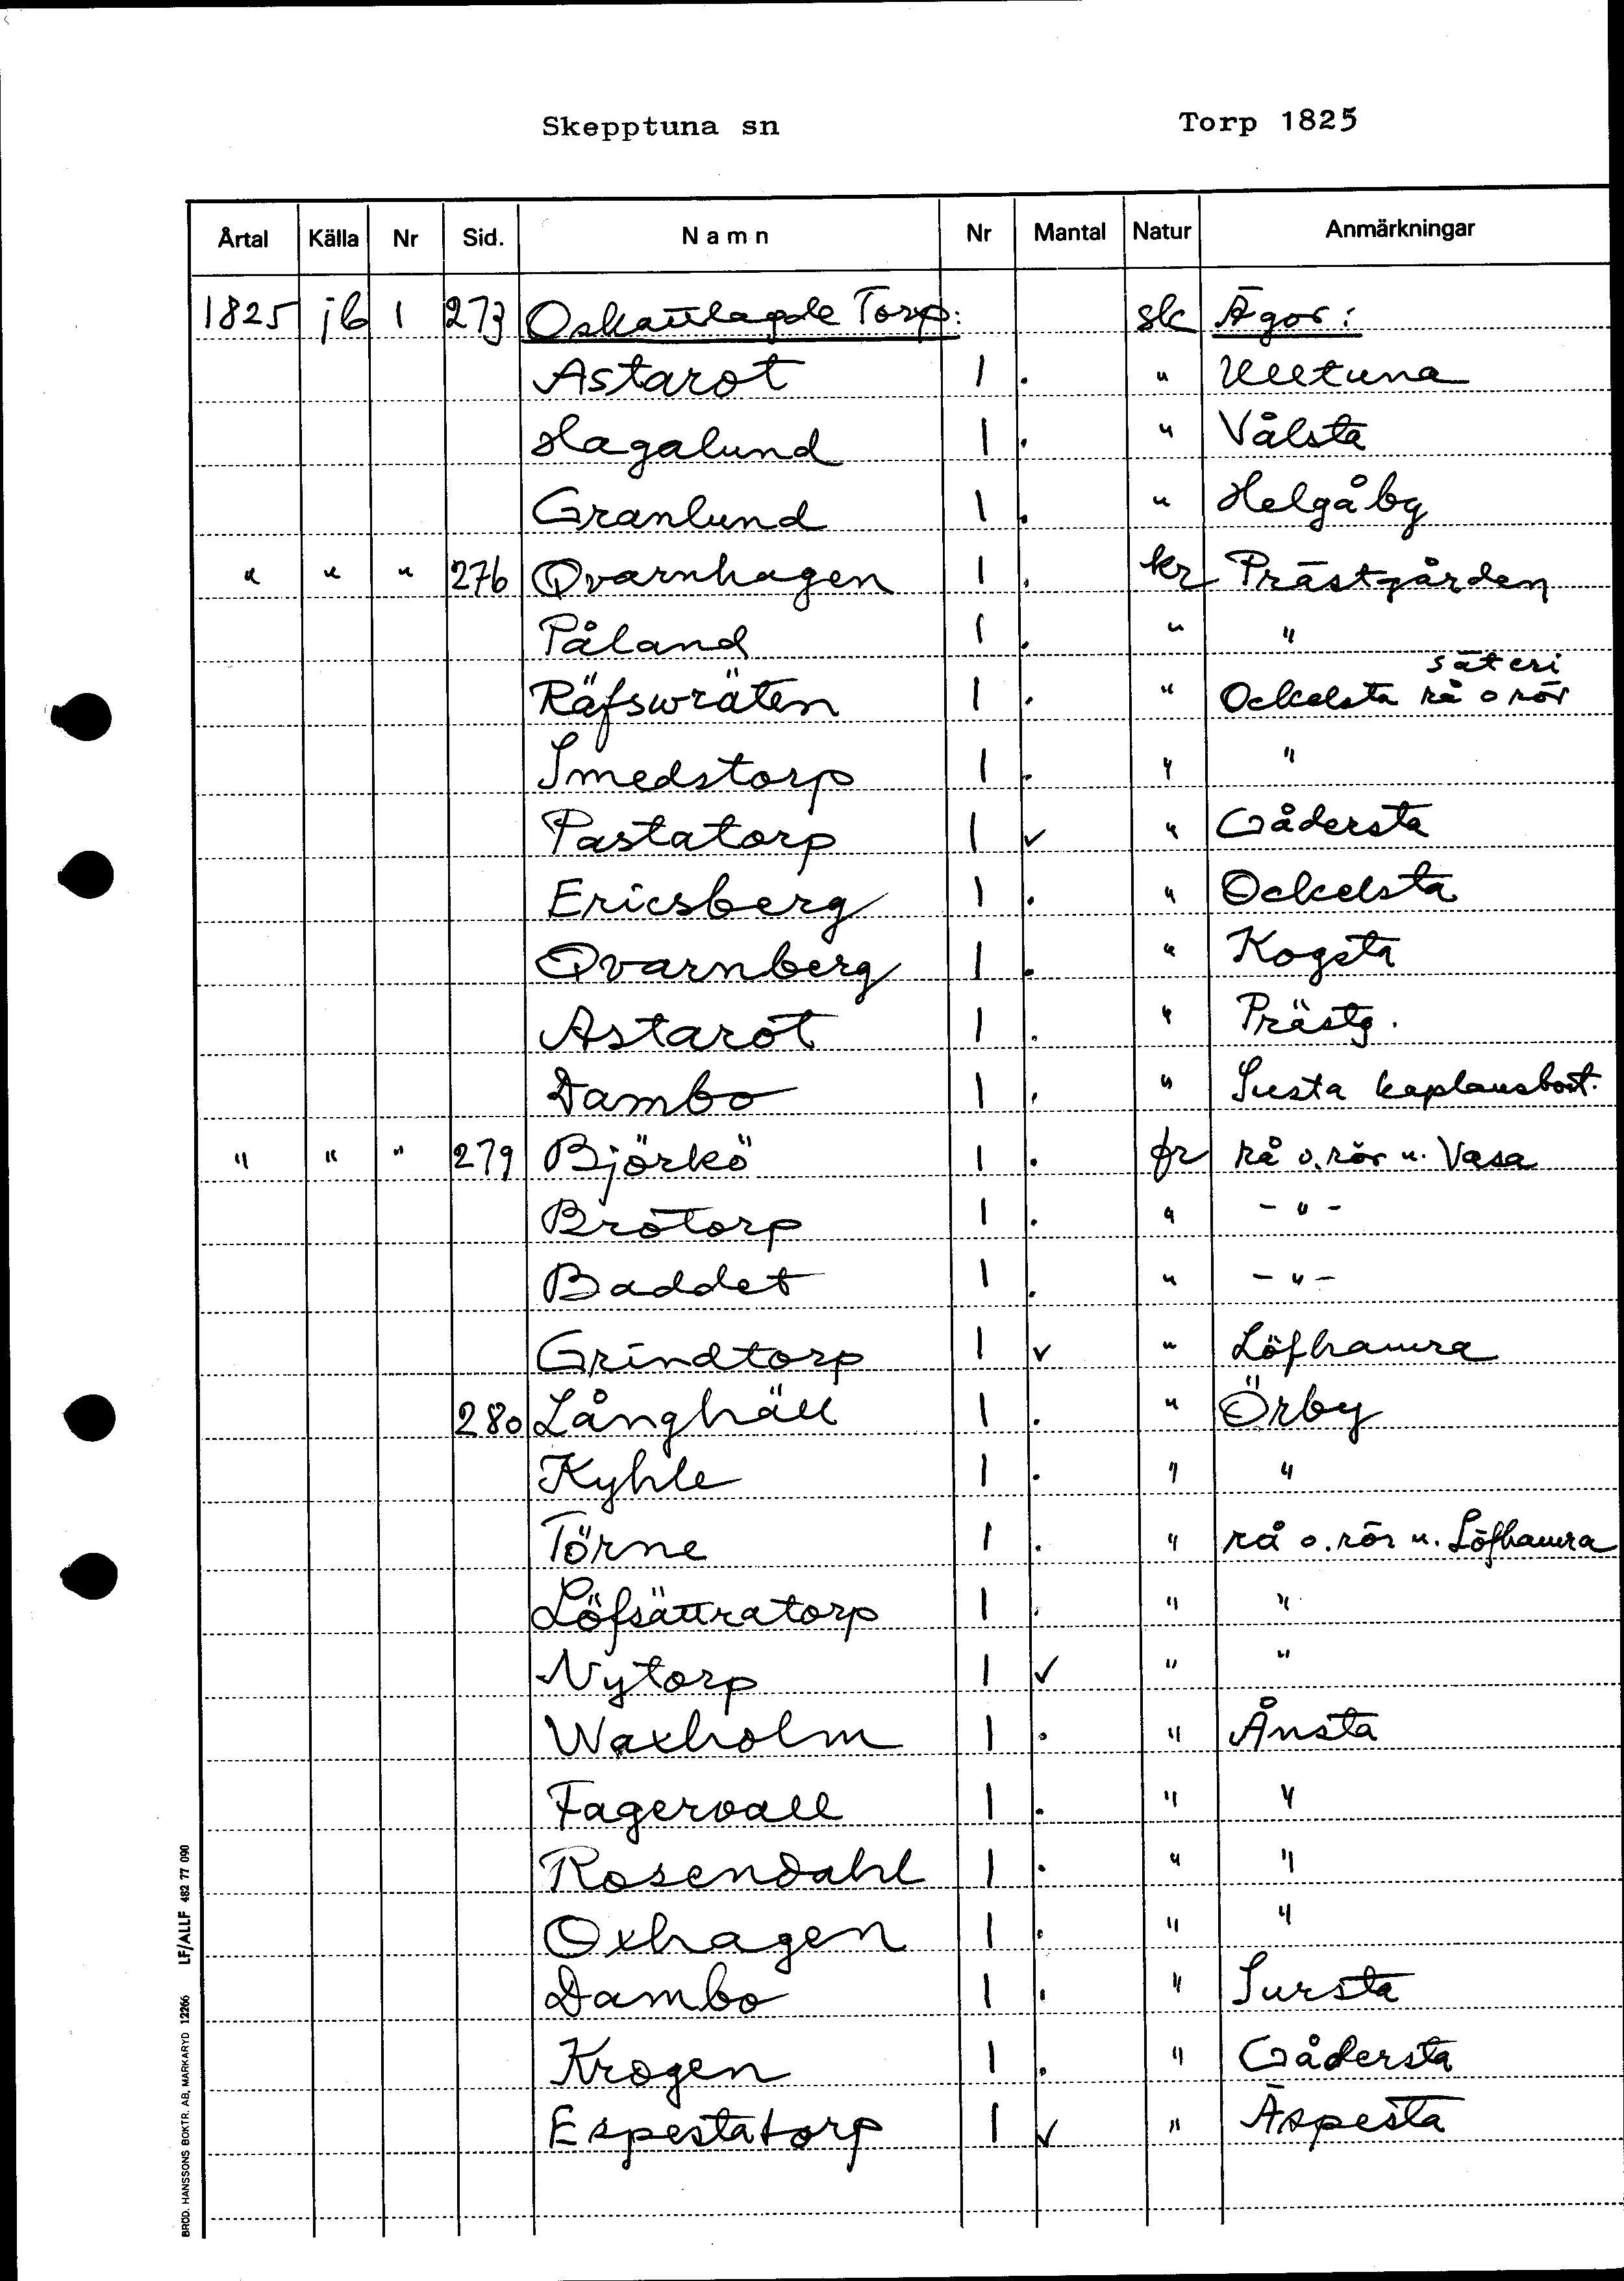 Skepptuna sn Torp 1825
Årtal Källa Nr Sid. Namn Nr Mantal Natur Anmärkningar
1825 jb 1 273 Oskattlagde Torp: sk Ägor:
Astarot 1 . " Ulltuna
Hagalund 1 . " Vålsta
Granlund 1 . " Helgåby
" " " 276 Qvarnhagen 1 . kr Prästgården
Påland 1 . " "
säteri
Räfswräten 1 . " Ockelsta rå o rör
Smedstorp 1 . " "
Pastatorp 1 ✓ " Gådersta
Ericsberg 1 . " Ockelsta
Qvarnberg 1 . " Kogsta
Astarot 1 . " Prästg.
Dambo 1 . " Susta kaplansbost.
" " " 279 Björkö 1 . fr rå o. rör u. Vasa
Brotorp 1 . " - " -
Baddet 1 . " - " -
Grindtorp 1 ✓ " Löfhamra
280 Långhäll 1 . " Örby
Kyhle 1 . " "
Törne 1 . " rå o. rör u. Löfhamra
Löfsättratorp 1 . " "
Nytorp 1 ✓ " "
Waxholm 1 . " Ånsta
Fagervall 1 . " "
Rosendahl 1 . " "
Oxhagen 1 . " "
Dambo 1 . " Sursta
Krogen 1 . " Gådersta
Espestatorp 1 ✓ " Äspesta
BROD. HANSSONS BOKTR. AB, MARKARYD 12266 LF/ALLF 482 77 090